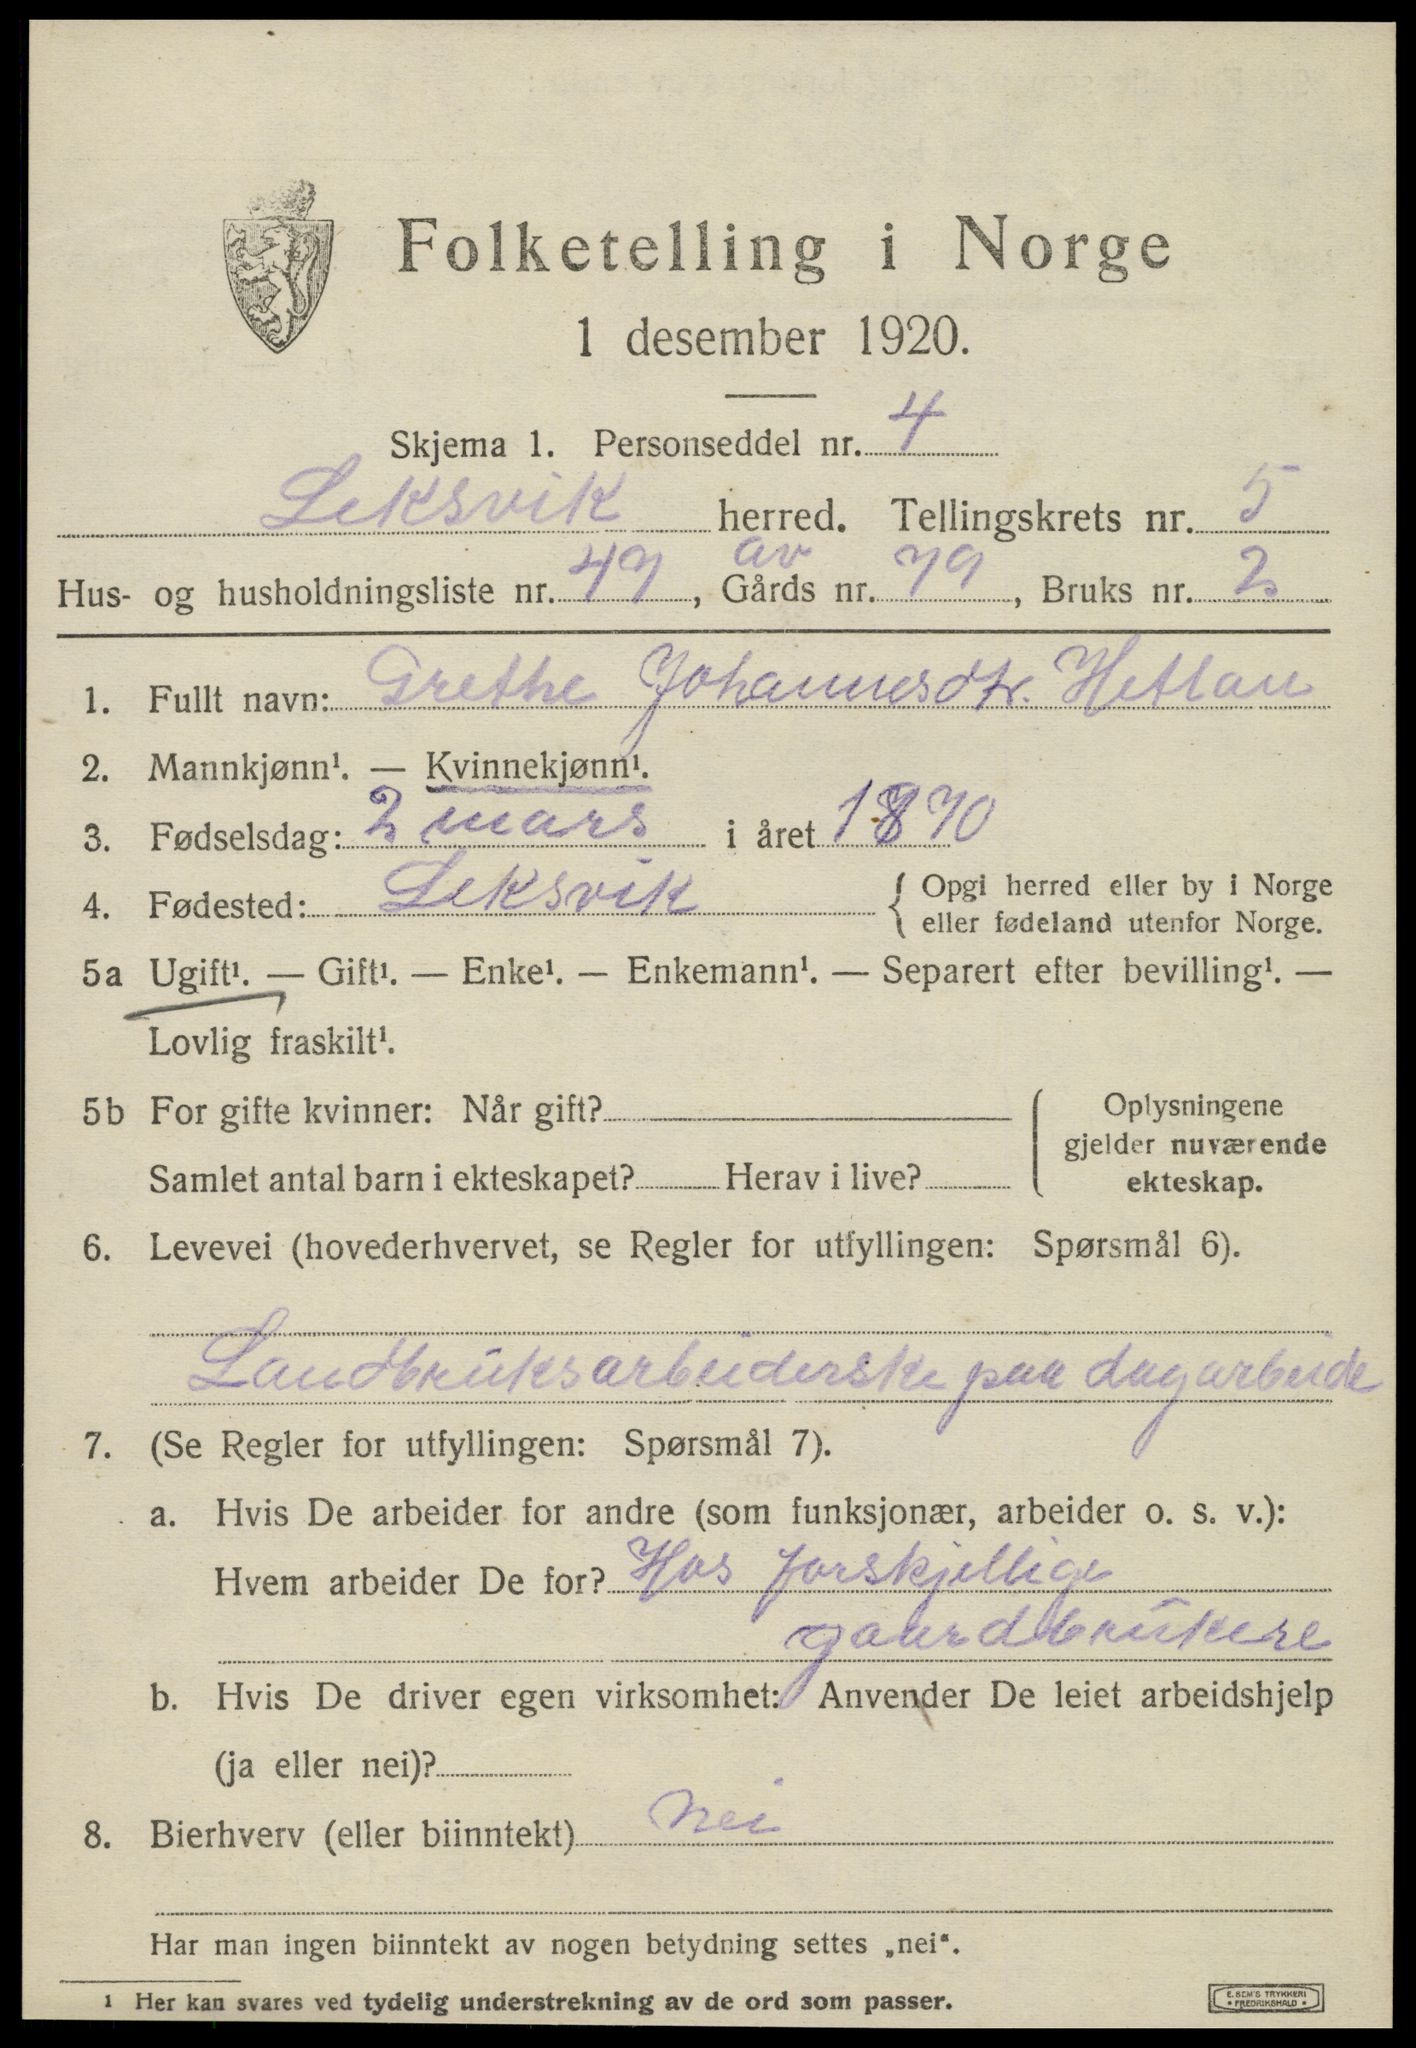 Folketelling i Norge
1 desember 1920.
Skjema 1. Personseddel nr. 4
Leksvik herred. Tellingskrets nr. 5
Hus- og husholdningsliste nr. 47, av Gårds nr. 79, Bruks nr. 2
1. Fullt navn: Grethe Johannesdtr. Hetlan
2. Mannkjønn¹. — Kvinnekjønn¹.
3. Fødselsdag: 2 mars i året 1870
4. Fødested: Leksvik { Opgi herred eller by i Norge
eller fødeland utenfor Norge.
5a Ugift¹. — Gift¹. — Enke¹. — Enkemann¹. — Separert efter bevilling¹. —
Lovlig fraskilt¹.
5b For gifte kvinner: Når gift?
Samlet antal barn i ekteskapet? Herav i live?
Oplysningene
gjelder nuværende
ekteskap.
6. Levevei (hovederhvervet, se Regler for utfyllingen: Spørsmål 6).
Landbruksarbeiderske paa dagarbeide
7. (Se Regler for utfyllingen: Spørsmål 7).
a. Hvis De arbeider for andre (som funksjonær, arbeider o. s. v.):
Hvem arbeider De for? Hos forskjellige
gaardbrukere
b. Hvis De driver egen virksomhet: Anvender De leiet arbeidshjelp
(ja eller nei)?
8. Bierhverv (eller biinntekt) nei
Har man ingen biinntekt av nogen betydning settes „nei“.
1 Her kan svares ved tydelig understrekning av de ord som passer.
E. SEM'S TRYKKERI
• FREDRIKSHALD •